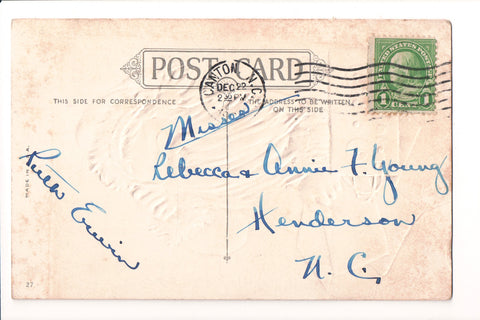 POST CARD
CANTON, N.C.
DEC 22
2 30 PM
UNITED STATES POSTAGE
1 1
THIS SIDE FOR CORRESPONDENCE
THE ADDRESS TO BE WRITTEN
ON THIS SIDE
Misses
Rebecca & Annie F. Young
Henderson
N. C.
Ruth Erwin
MADE IN U.S.A.
27